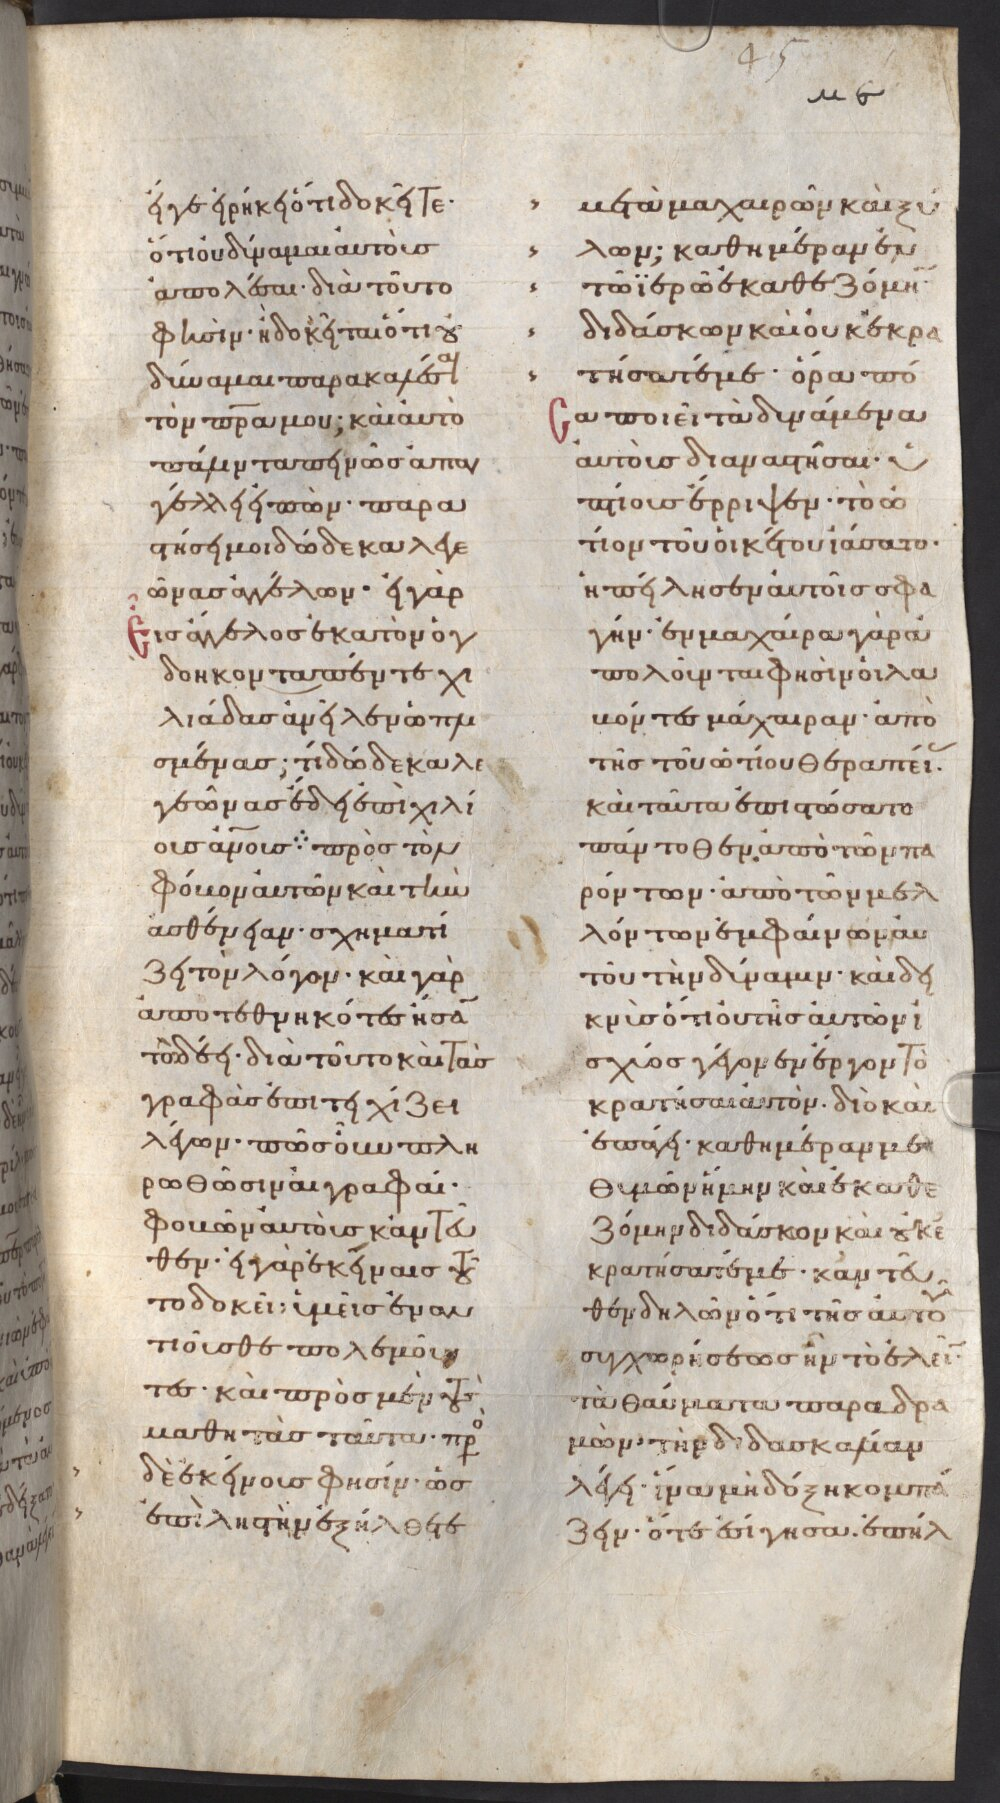 45
με
ἢ γε εἰρήκει ὅτι δοκεῖτε·
ὅτι οὐ δύναμαι αὐτοὺς
ἀπολέσαι· διὰ τοῦτο
φησὶν· ἢ δοκεῖται ὅτι οὐ
δύναμαι παρακαλέσαι
τὸν πρα μου; καὶ αὐτὸ
πάλιν ταπεινῶς ἀπαγ
γέλλει εἰπὼν· παρα
στήσει μοι δώδεκα λεγε
ῶνας ἀγγέλων· εἰ γὰρ
εἷς ἄγγελος ἑκατὸν ὀγ
δοηκονταπέντε χι
λιάδας ἀνεῖλεν ὡπλι
σμένας; τί δώδεκα λε
γεῶνας ἔδει ἐπὶ χιλί
οις ἀνοις· πρὸς τὸν
φόβον αὐτῶν καὶ τὴν
ἀσθένειαν· σχηματί
ζει τὸν λόγον· καὶ γὰρ
ἀποτεθνηκότες ἦσα
τῶ δέει· διὰ τοῦτο καὶ τὰς
γραφὰς ἐπιτειχίζει
λέγων· πῶς οὖν πλη
ρωθῶσιν αἱ γραφαί·
φοβῶν αὐτοὺς κἀντεῦ
θεν· εἰ γὰρ ἐκείναις τοῦ
το δοκεῖ· ὑμεῖς ἐναν
τιοῦσθε πολεμοῦν
τες· καὶ πρὸς μὲν τοὺς
μαθητὰς ταῦτα· πρὸ
δὲ ἐκείνοις φησίν· ὡς
ἐπὶ ληστὴν ἐξήλθετε
μετὰ μαχαιρῶν καὶ ξύ
λων; καθημέραν ἐν
τῶ ϊερῶ ἐκαθεζόμην
διδάσκων καὶ οὐκ ἐκρα
τήσατέ με· ὅρα πό
σα ποιεῖ τὰ δυνάμενα
αὐτοὺς διαναστῆσαι· ὑ
πτίους ἔρριψεν· τὸ ὠ
τίον τοῦ οἰκέτου ἰάσατο·
ἠπείλησεν αὐτοῖς σφα
γήν· ἐν μαχαίρα γὰρ ἀ
πολοῦνται φησὶν οἱ λα
βόντες μάχαιραν· ἀπὸ
τῆς τοῦ ὠτίου θεραπεί·
καὶ ταῦτα ἐπιστώσατο
πάντοθεν ἀπὸ τῶν πα
ρόντων· ἀπὸ τῶν μελ
λόντων ἐμφαίνων αὐ
τοῦ τὴν δύναμιν· καὶ δει
κνὺς ὅτι οὐ τῆς αὐτῶν ἰ
σχύος γέγονεν ἔργον τὸ
κρατῆσαι αὐτὸν· διὸ καὶ
ἐπάγει· καθημέραν με
θυμῶν ἤμην καὶ ἐκαθε
ζόμην διδάσκον καὶ οὐκ ἐ
κρατήσατέ με· κἀντεῦ
θεν δηλῶν ὅτι τῆς αὐτοῦ
συγχωρήσεως ἦν τὸ ἑλεῖ·
τὰ θαύματα παραδρα
μὼν· τὴν διδασκαλίαν
λέγει· ἵνα μὴ δόξη κομπά
ζειν· ὅτε ἐσίγησα· ἐπήλ